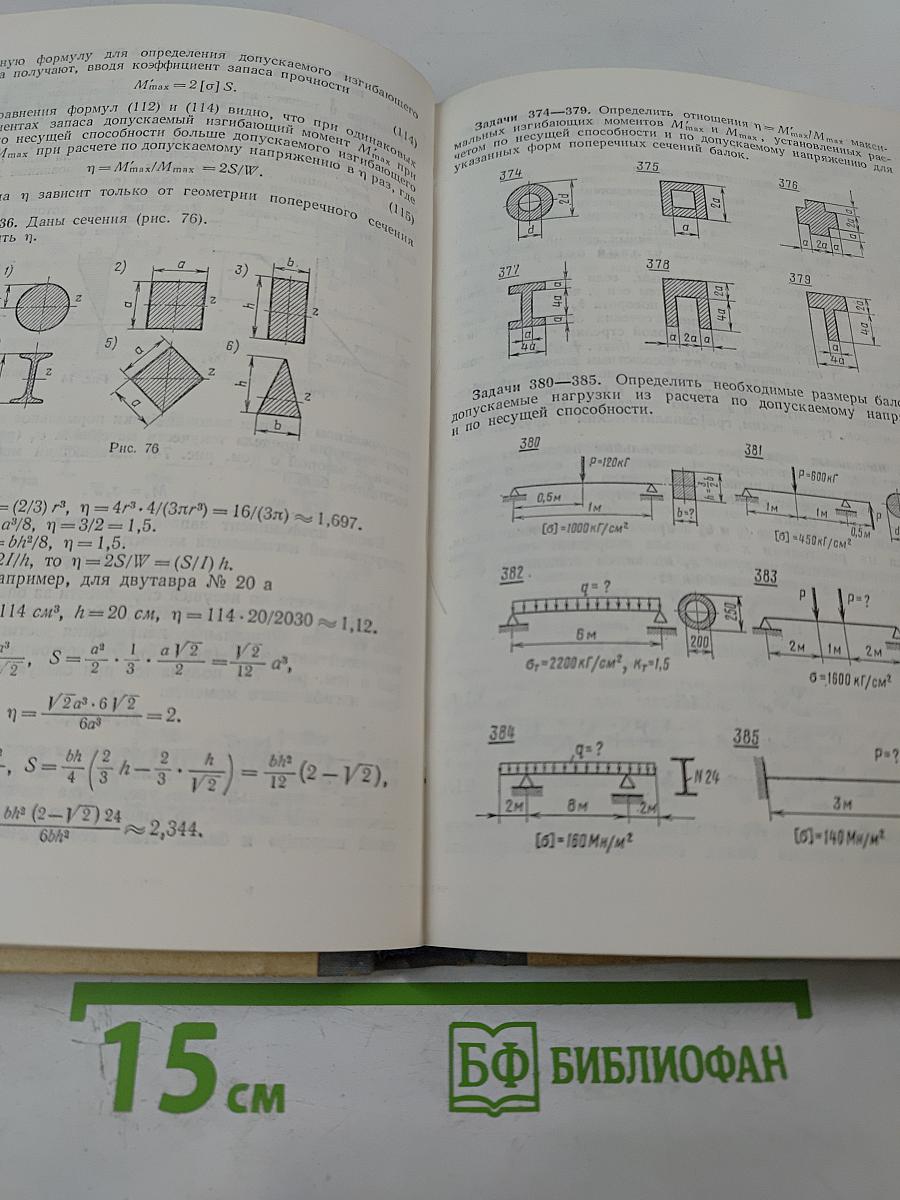 ную формулу для определения допускаемого изгибающего
а получают, вводя коэффициент запаса прочности
M′max = 2 [σ] S. (114)
равнения формул (112) и (114) видно, что при одинаковых
ентах запаса допускаемый изгибающий момент M′max при
о несущей способности больше допускаемого изгибающего
Mmax при расчете по допускаемому напряжению в η раз, где
η = M′max/Mmax = 2S/W. (115)
на η зависит только от геометрии поперечного сечения
36. Даны сечения (рис. 76).
ть η.
1)
z
2)
a
a
z
3)
b
h
z
z
5)
a
a
z
6)
h
z
b
Рис. 76
= (2/3) r³, η = 4r³·4/(3πr³) = 16/(3π) ≈ 1,697.
a³/8, η = 3/2 = 1,5.
= bh²/8, η = 1,5.
2I/h, то η = 2S/W = (S/I) h.
апример, для двутавра № 20 а
114 см³, h = 20 см, η = 114·20/2030 ≈ 1,12.
S = a²/2 · 1/3 · a√2/2 = √2/12 a³,
η = √2a³·6√2/6a³ = 2.
S = bh/4 (2/3 h − 2/3 · h/√2) = bh²/12 (2 − √2),
bh² (2 − √2) 24/6bh² ≈ 2,344.
Задачи 374—379. Определить отношения η = M′max/Mmax макси-
мальных изгибающих моментов M′max и Mmax, установленных рас-
четом по несущей способности и по допускаемому напряжению для
указанных форм поперечных сечений балок.
374
2d
d
375
2a
a
376
a
2a
a
a 2a a
377
a
4a
a
a
4a
378
2a
4a
a 2a a
379
2a
4a
a
4a
Задачи 380—385. Определить необходимые размеры бало
допускаемые нагрузки из расчета по допускаемому напр
и по несущей способности.
380
P=120кГ
0,5м
1м
b=?
[σ]=1000кГ/см²
381
P=600кГ
1м
1м
0,5м
P
d
[σ]=450кГ/см²
382
q=?
6м
250
200
σт=2200кГ/см², Kт=1,5
383
P
P=?
2м
1м
2м
σ=1600кГ/см²
384
q=?
N24
2м
8м
2м
[σ]=160Мн/м²
385
P=?
3м
[σ]=140Мн/м²
15 см
БФ БИБЛИОФАН